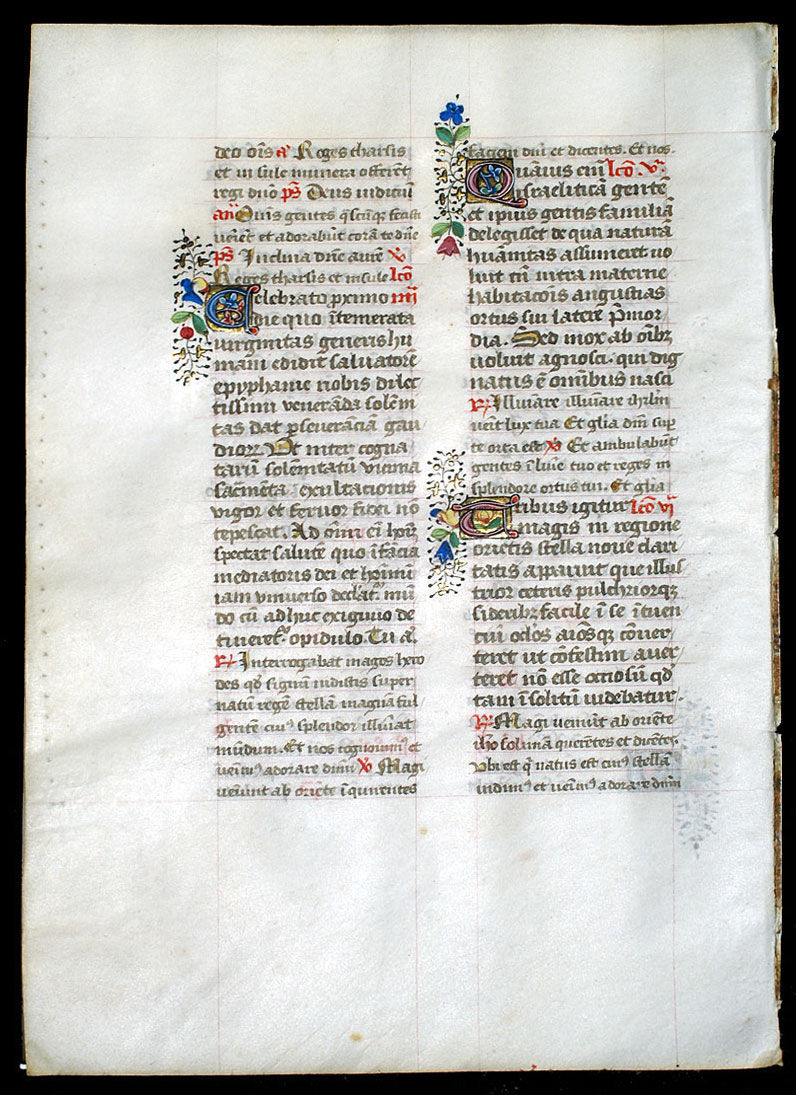 deo om̄s a᷑ Reges tharsis
et in sule munera offerēt
regi dn̄o p̄s Deus iudiciū
añ Om̄s gentes q̄scūq; fecisti
ueniēt et adorabūt corā te dn̄e
p̄s Inclina dn̄e aurē v
Reges tharsis et insule lc̄o
Celebrato p̲ximo iiii
die quo ītemerata
uirginitas generis hu
mani edidit saluatorē
epyphanie nobis dilec
tissimi veneranda solēni
tas dat p̲seuerāciā gau
dior̄. Vt inter cogna
tarū solēnitatū vicina
sacm̄enta exultacionis
vigor et feruor fidei nō
tepescat. Ad om̄i em̄ hoīm
spectat salutē quo īfācia
mediatoris dei et hoīmū
iam vniuerso declāt.ͬ mū
do cū adhuc exiguuo de
tineret.ͬ opidulo. Tu a.ͭ
r̷ Interrogabat magos hero
des qd̛ signum uidistis super
natum regē stellam magnā ful
gentē cui⁹ splendor illuīat
mūdum. Et nos cognouim⁹ et
uenim⁹ adorare dn̄m v Magi
ueniunt ab oriēte īquirentes
faciem dn̄i et dicentes. Et nos.
Quāuis em̄ lc̄o v.ͣ
israeliticā gentē
et ip̄ius gentis familiā
delegisset de qua naturā
huāitas assumeret uo
luit tn̄ intra materne
habitacōis angustias
ortus sui latere p̄mor
dia. Sed mox ab oībꝫ
uoluit agnosci. qui dig
natus ē omībus nasci
r̷ Illuīare illuīare ihrl̄m
uenit lux tua Et glīa dn̄i sup̲
te orta est v Et ambulabūt
gentes ī luīe tuo et reges in
splendore ortus tui. Et glīa
Tribus igitur lc̄o vi
magis in regione
orietis stella noue clari
tatis apparuit que illus
trior ceteris pulchriorqꝫ
sideribꝫ facile ī se ītuen
ciū oclos aīosqꝫ cōuer
teret ut cōfestim auer
teret nō esse ociosū qd̛
tam īsolitū uidebatur.
r̷ Magi ueniūt ab oriēte
iherosolimā querētes et dicētes.
Vbi est q̄ natus est cui⁹ stellā
uidim⁹ et uenim⁹ adorare dn̄m